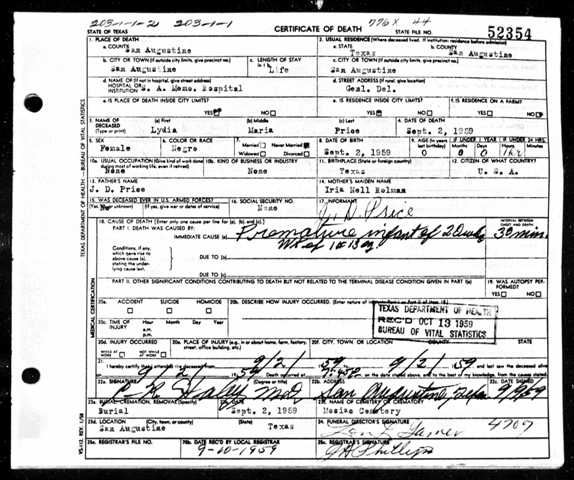 203-1-1-2 203-1-1 776 X 44
STATE OF TEXAS CERTIFICATE OF DEATH STATE FILE NO. 52354
1. PLACE OF DEATH 2. USUAL RESIDENCE (Where deceased lived. If institution: residence before admission)
a. COUNTY San Augustine a. STATE Texas b. COUNTY San Augustine
b. CITY OR TOWN (If outside city limits, give precinct no.) c. LENGTH OF STAY c. CITY OR TOWN (If outside city limits, give precinct no.)
San Augustine Life San Augustine
d. NAME OF (If not in hospital, give street address) d. STREET ADDRESS (If rural, give location)
HOSPITAL OR INSTITUTION S. A. Memo. Hospital Genl. Del.
e. IS PLACE OF DEATH INSIDE CITY LIMITS? YES NO e. IS RESIDENCE INSIDE CITY LIMITS? YES NO f. IS RESIDENCE ON A FARM? YES NO
3. NAME OF DECEASED (Type or print) (a) First (b) Middle (c) Last 4. DATE OF DEATH
Lydia Maria Price Sept. 2, 1959
5. SEX 6. COLOR OR RACE 7. Married Never Married 8. DATE OF BIRTH 9. AGE IF UNDER 1 YEAR IF UNDER 24 HRS.
Female Negro Widowed Divorced Sept. 2, 1959
10a. USUAL OCCUPATION (Give kind of work done during most of working life, even if retired) 10b. KIND OF BUSINESS OR INDUSTRY 11. BIRTHPLACE (State or foreign country) 12. CITIZEN OF WHAT COUNTRY?
None None Texas U. S. A.
13. FATHER'S NAME 14. MOTHER'S MAIDEN NAME
J. D. Price Iria Nell Holman
15. WAS DECEASED EVER IN U.S. ARMED FORCES? 16. SOCIAL SECURITY NO. 17. INFORMANT
(If yes, give war or dates of service) None J. D. Price
18. CAUSE OF DEATH (Enter only one cause per line for (a), (b), and (c).) INTERVAL BETWEEN ONSET AND DEATH
PART I. DEATH WAS CAUSED BY:
IMMEDIATE CAUSE (a) Premature infant of 30 min.
Conditions, if any, which gave rise to above cause (a), stating the underlying cause last. DUE TO (b)
DUE TO (c)
PART II. OTHER SIGNIFICANT CONDITIONS CONTRIBUTING TO DEATH BUT NOT RELATED TO THE TERMINAL DISEASE CONDITION GIVEN IN PART I(a) 19. WAS AUTOPSY PERFORMED?
YES NO
20a. ACCIDENT SUICIDE HOMICIDE 20b. DESCRIBE HOW INJURY OCCURRED.
TEXAS DEPARTMENT OF HEALTH
REC'D OCT 13 1959
BUREAU OF VITAL STATISTICS
20c. TIME OF INJURY Hour Month Day Year
a.m.
p.m.
20d. INJURY OCCURRED 20e. PLACE OF INJURY (e.g., in or about home, farm, factory, street, office building, etc.) 20f. CITY, TOWN, OR LOCATION COUNTY STATE
WHILE AT WORK NOT WHILE AT WORK
21. I hereby certify 9/2/ 59 9/2/ 59 and last saw the deceased alive
22a. SIGNATURE (Degree or title) 22b. ADDRESS 22c. DATE SIGNED
MD San Augustine, Texas
23a. BURIAL, CREMATION, REMOVAL (Specify) 23c. NAME OF CEMETERY OR CREMATORY
Burial Sept. 2, 1959 Cemetery
23d. LOCATION (City, town, or county) (State) 24. FUNERAL DIRECTOR'S SIGNATURE
San Augustine Texas 4707
25a. REGISTRAR'S FILE NO. 25b. DATE REC'D BY LOCAL REGISTRAR 25c. REGISTRAR'S SIGNATURE
9-10-1959 Phillips
TEXAS DEPARTMENT OF HEALTH—BUREAU OF VITAL STATISTICS
MEDICAL CERTIFICATION
VS-112, REV. 1/58